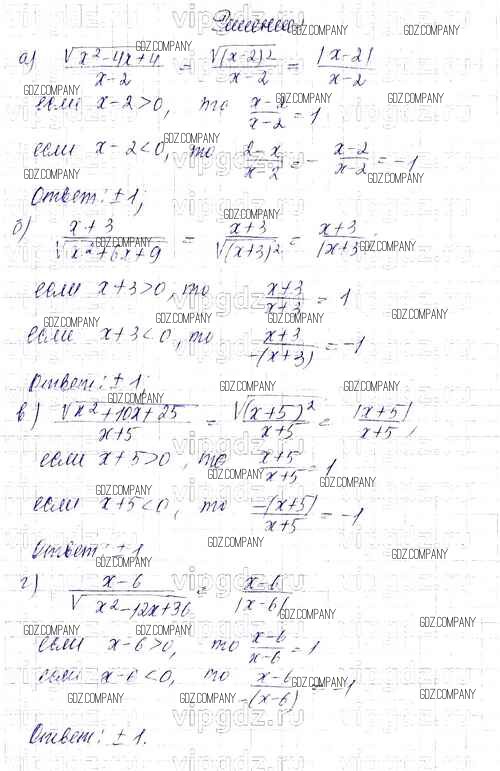 Решение:
а) √(x²-4x+4) / (x-2) = √((x-2)²) / (x-2) = |x-2| / (x-2)
если x-2>0, то (x-2)/(x-2) = 1
если x-2<0, то (2-x)/(x-2) = - (x-2)/(x-2) = -1
Ответ: ±1;
б) (x+3) / √(x²+6x+9) = (x+3) / √((x+3)²) = (x+3) / |x+3|
если x+3>0, то (x+3)/(x+3) = 1
если x+3<0, то (x+3) / -(x+3) = -1
Ответ: ±1;
в) √(x²+10x+25) / (x+5) = √((x+5)²) / (x+5) = |x+5| / (x+5),
если x+5>0, то (x+5)/(x+5) = 1
если x+5<0, то -(x+5) / (x+5) = -1
Ответ: ±1
г) (x-6) / √(x²-12x+36) = (x-6) / |x-6|
если x-6>0, то (x-6)/(x-6) = 1
если x-6<0, то (x-6) / -(x-6) = -1
Ответ: ±1.
GDZ.COMPANY
vipgdz.ru